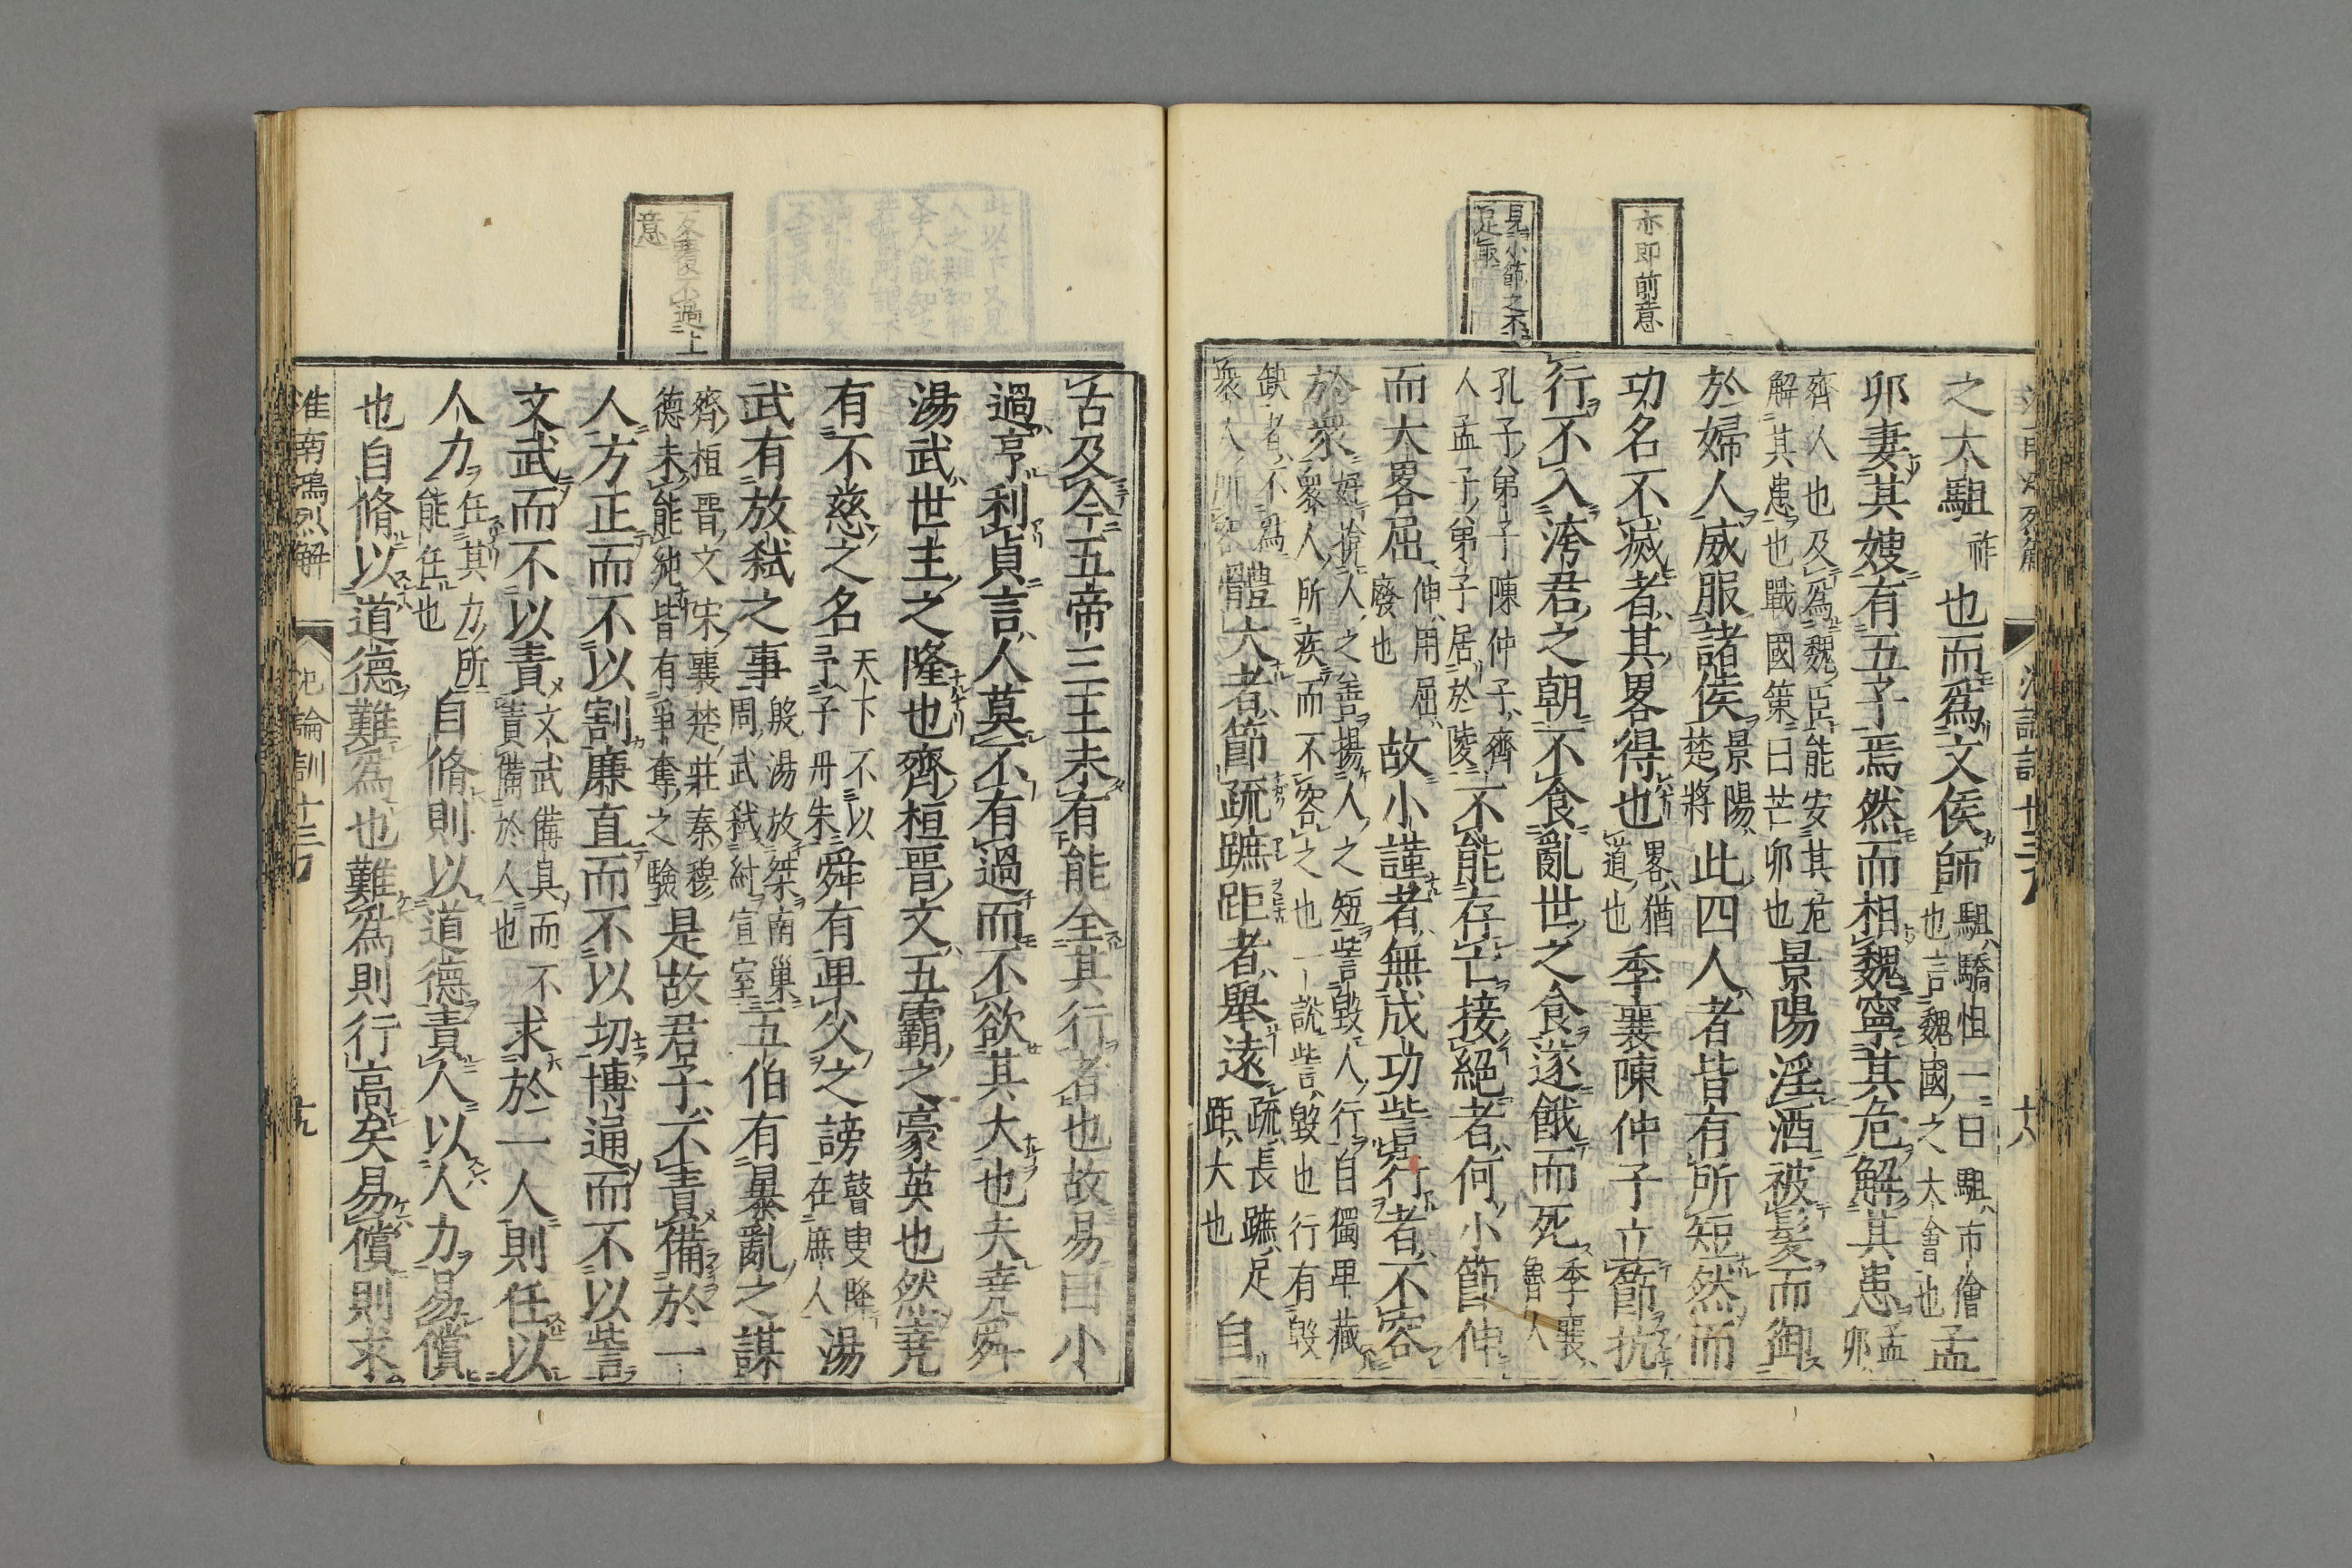 亦即前意
見小節之不
足取
之大駔祚也而爲文侯師駔驕怚一曰駔市儈也言魏國之大會也孟
卯妻其嫂有五子焉然而相魏寧其危解其患孟卯
齊人也及爲魏臣能安其危解其患也戰國策曰芒卯也景陽淫酒被髪而御
於婦人威服諸侯景陽楚將此四人者皆有所短然而
功名不滅者其畧得也畧猶道也季襄陳仲子立節抗
行不入洿君之朝不食亂世之食遂餓而死季襄魯人
孔子弟子陳仲子齊人孟子弟子居於陵不能存亡接絕者何小節伸
而大畧屈伸用屈廢也故小謹者無成功訾行者不容
於衆好揜人之善揚人之短訾毀人行自獨卑藏衆人所疾而不容之也一說訾毀也行有毀
缺者不爲衆人所容體大者節疏蹠距者舉遠疏長蹠足距大也自
十八
反覆不過上
意
古及今五帝三王未有能全其行者也故易曰小
過亨利貞言人莫不有過而不欲其大也夫堯舜
湯武世主之隆也齊桓晉文五霸之豪英也然堯
有不慈之名天下不以予子丹朱舜有卑父之謗瞽叟降在庶人湯
武有放弒之事殷湯放桀南巢周武弒紂宣室五伯有暴亂之謀
齊桓晉文宋襄楚莊秦穆德未能純皆有爭奪之驗是故君子不責備於一
人方正而不以割廉直而不以切博通而不以訾
文武而不以責文武備具而不責備於人也求於一人則任以
人力任其力所能任也自脩則以道德責人以人力易償
也自脩以道德難爲也難爲則行高矣易償則求
淮南鴻烈解
氾論訓十三
十九